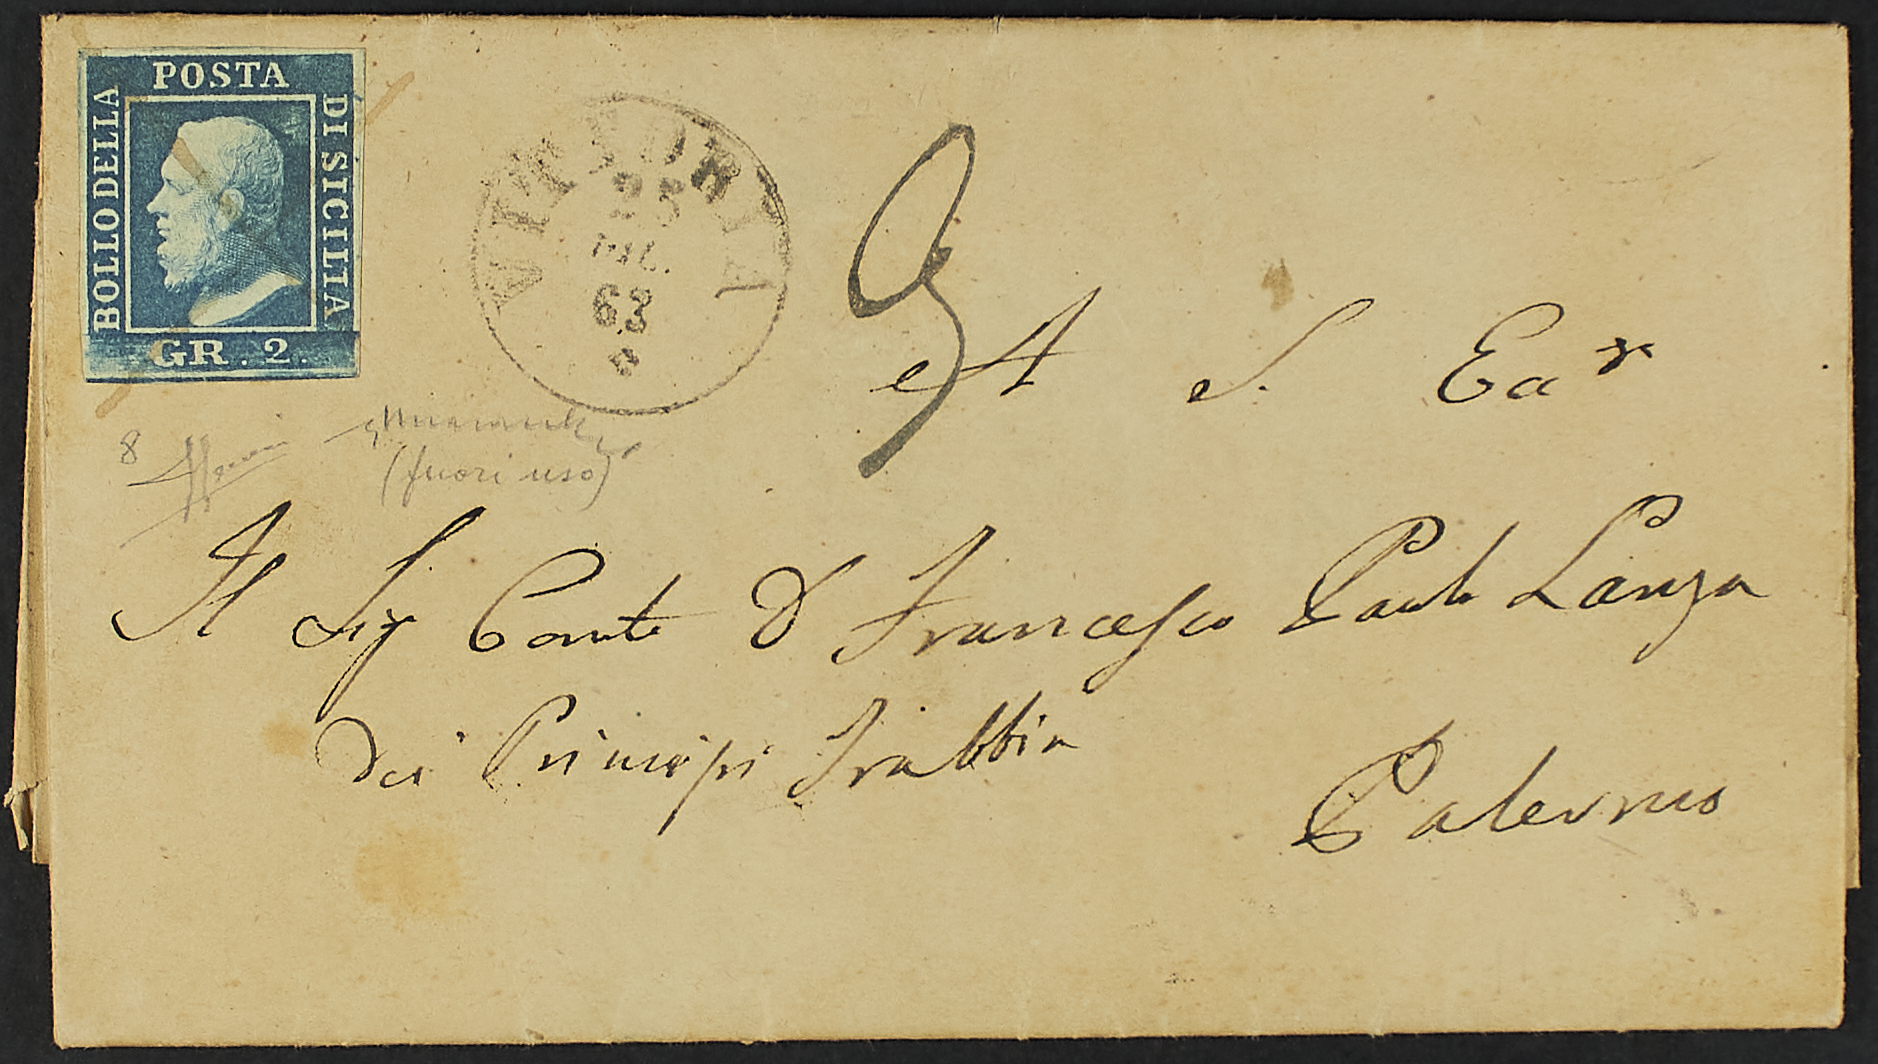 POSTA
BOLLO DELLA
DI SICILIA
GR. 2.
VITTORIA
25
LUG.
63
8
(fuori uso)
A S. Ea
Il Sig Conte D Francesco Paolo Lanza
dei Principi Trabbia
Palermo